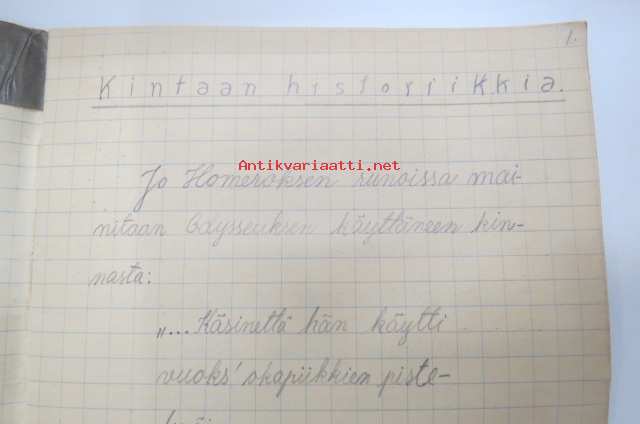 1.
Kintaan historiikkia.
Antikvariaatti.net
Jo Homeroksen runoissa mai-
nitaan Odysseuksen käyttäneen kin-
nasta:
„... Käsinettä hän käytti
vuoks' okapiikkien piste-